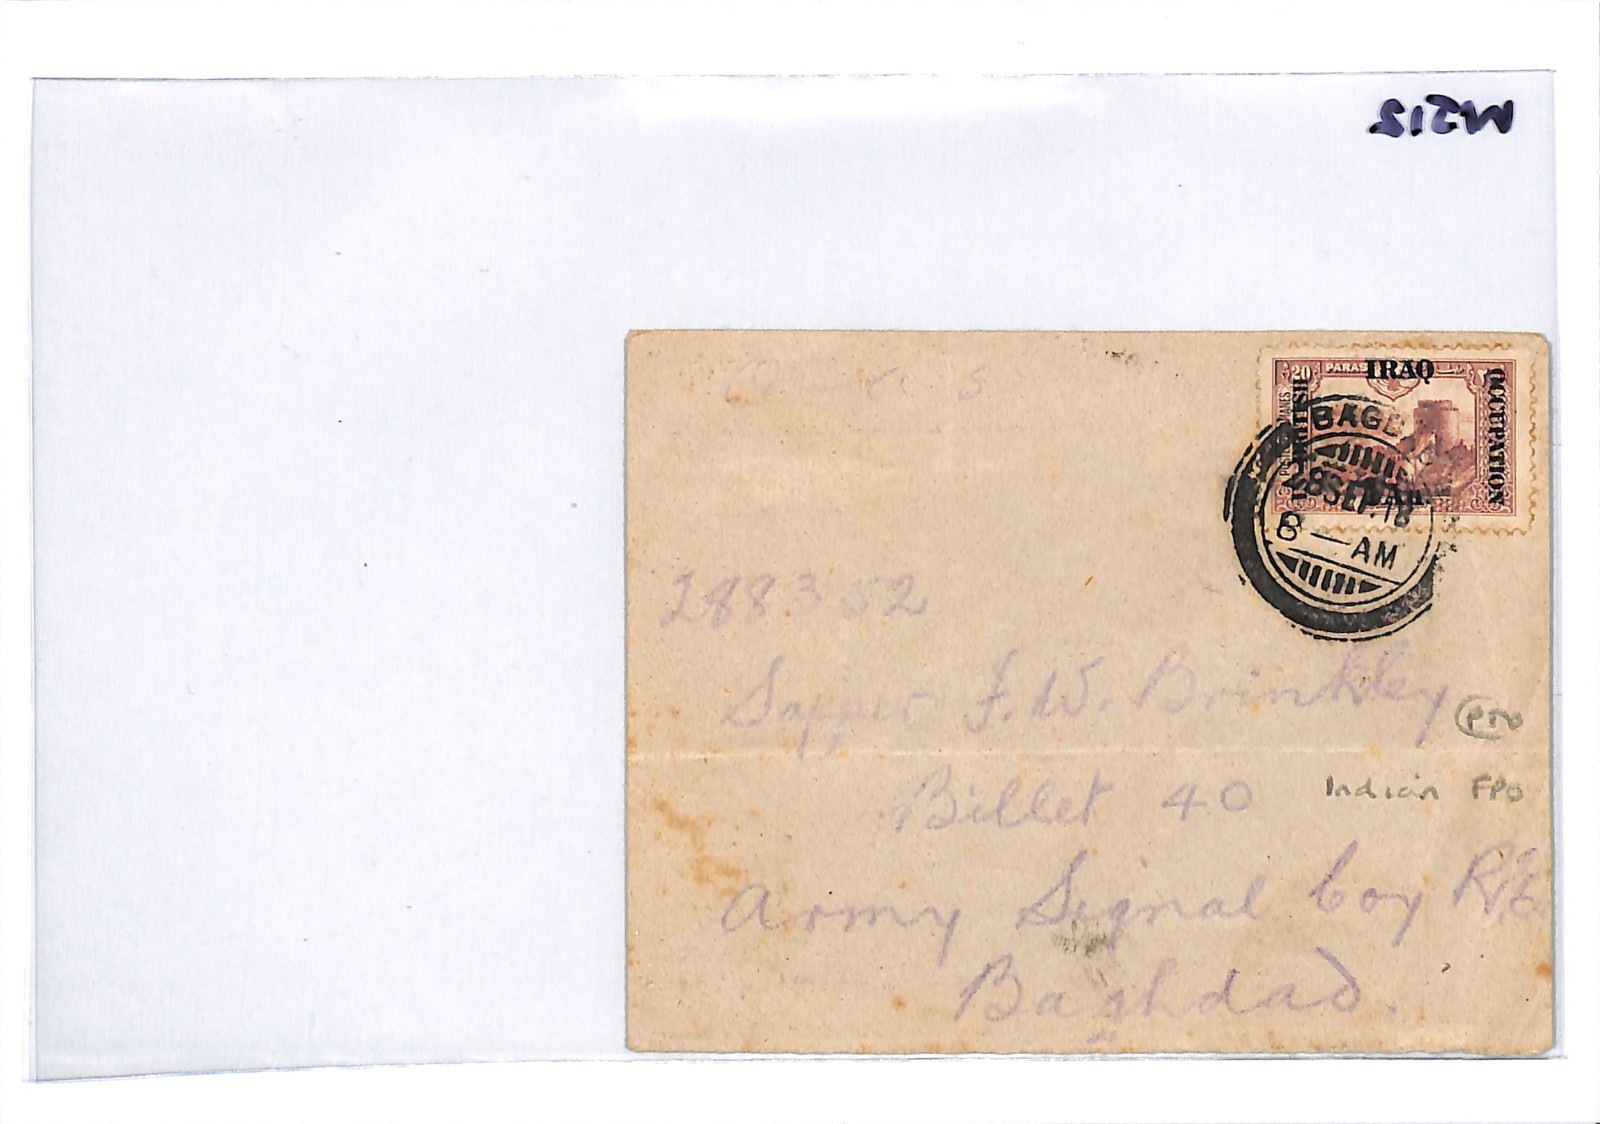 M518
20 PARAS
IRAQ
IN BRITISH
OCCUPATION
BAGDAD
28 SEP. 18
8 — AM
288352
Sapper F. W. Brinkley
PTO
Billet 40
Indian FPO
Army Signal Coy R.E.
Baghdad.